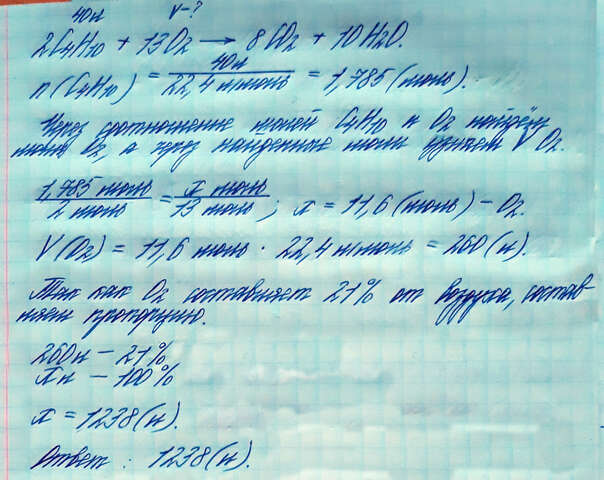 40л V-?
2C4H10 + 13O2 → 8CO2 + 10H2O.
n(C4H10) = 40л / 22,4 л/моль = 1,785 (моль).
Через соотношение молей C4H10 и O2 найдём
моль O2, а через найденные моли узнаем V O2.
1,785 моль / 2 моль = x моль / 13 моль ; x = 11,6 (моль) – O2.
V(O2) = 11,6 моль · 22,4 л/моль = 260 (л).
Так как O2 составляет 21% от воздуха, состав-
ляем пропорцию.
260л – 21%
xл – 100%
x = 1238 (л).
Ответ : 1238 (л).